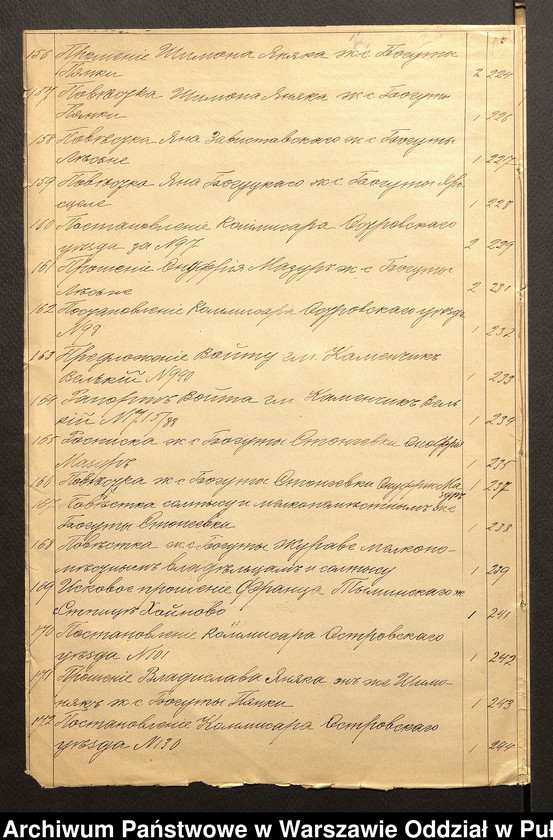 156 Прошеніе Шимона Яняка ж-с Богуты
Пянки 2 224
157 Повѣстка Шимона Яняка ж с Богуты
Пянки 1 226
158 Повѣстка Яна Завистовскаго ж с Богуты
1 227
159 Повѣстка Яна Богуцкаго ж с Богуты
1 228
160 Постановленіе Коммисара Островскаго
уѣзда за N97 2 229
161 Прошеніе Онуфрія Мазуръ ж-с Богуты
2 231
162 Постановленіе Коммисара Островскаго уѣзда
N99 1 232
163 Предложеніе войту гм. Каменчикъ
Велькій N940 1 233
164 Рапортъ войта гм. Каменчикъ Вель
кій 1 234
165 Росписка ж с Богуты Онуфрія
Мазуръ 1 235
166 Повѣстка ж с Богуты Онуфрію Ма
зуръ 1 237
167 Повѣстка солтысу и мелкопомѣстнымъ ж с
Богуты 1 238
168 Повѣстка ж с Богуты Жураве мелкопо-
мѣстнымъ владѣльцамъ и солтысу 1 239
169 Исковое прошеніе Франца Тыминскаго ж
Хойново 1 241
170 Постановленіе Коммисара Островскаго
уѣзда N101 1 242
171 Прошеніе Владислава Яняка онъ же Шимо-
някъ ж с Богуты Пянки 1 243
172 Постановленіе Коммисара Островскаго
уѣзда N130 1 244
Archiwum Państwowe w Warszawie Oddział w Puł